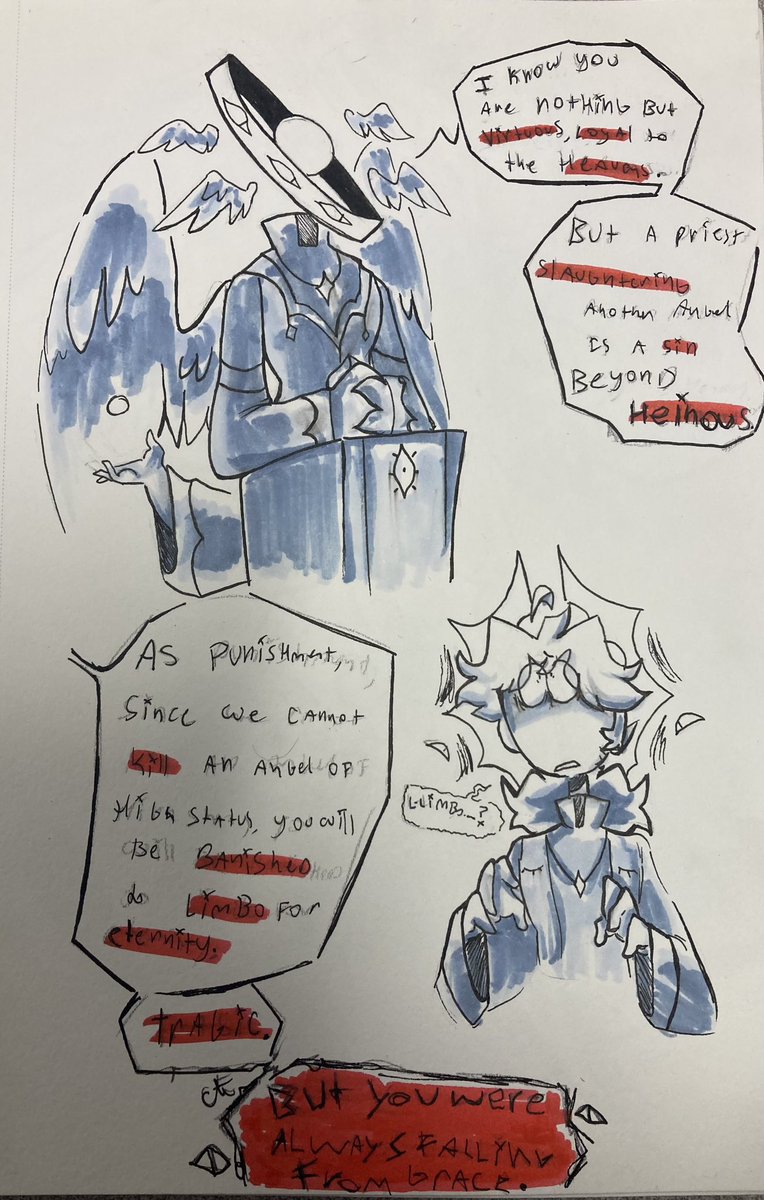 I KNOW YOU
ARE NOTHING BUT
VIRTUOUS, LOYAL to
the HEAVENS.
BUT A PRIEST
SLAUGHTERING
ANOTHER ANGEL
IS A SIN
BEYOND
HEINOUS
AS PUNISHMENT,
SINCE WE CANNOT
Kill AN ANGEL OF
HIGH STATUS, YOU Will
BE BANISHED
to LIMBO FOR
eternity.
L-LIMBO...?
TRAGIC.
BUT YOU WERE
ALWAYS FALLING
FROM GRACE.